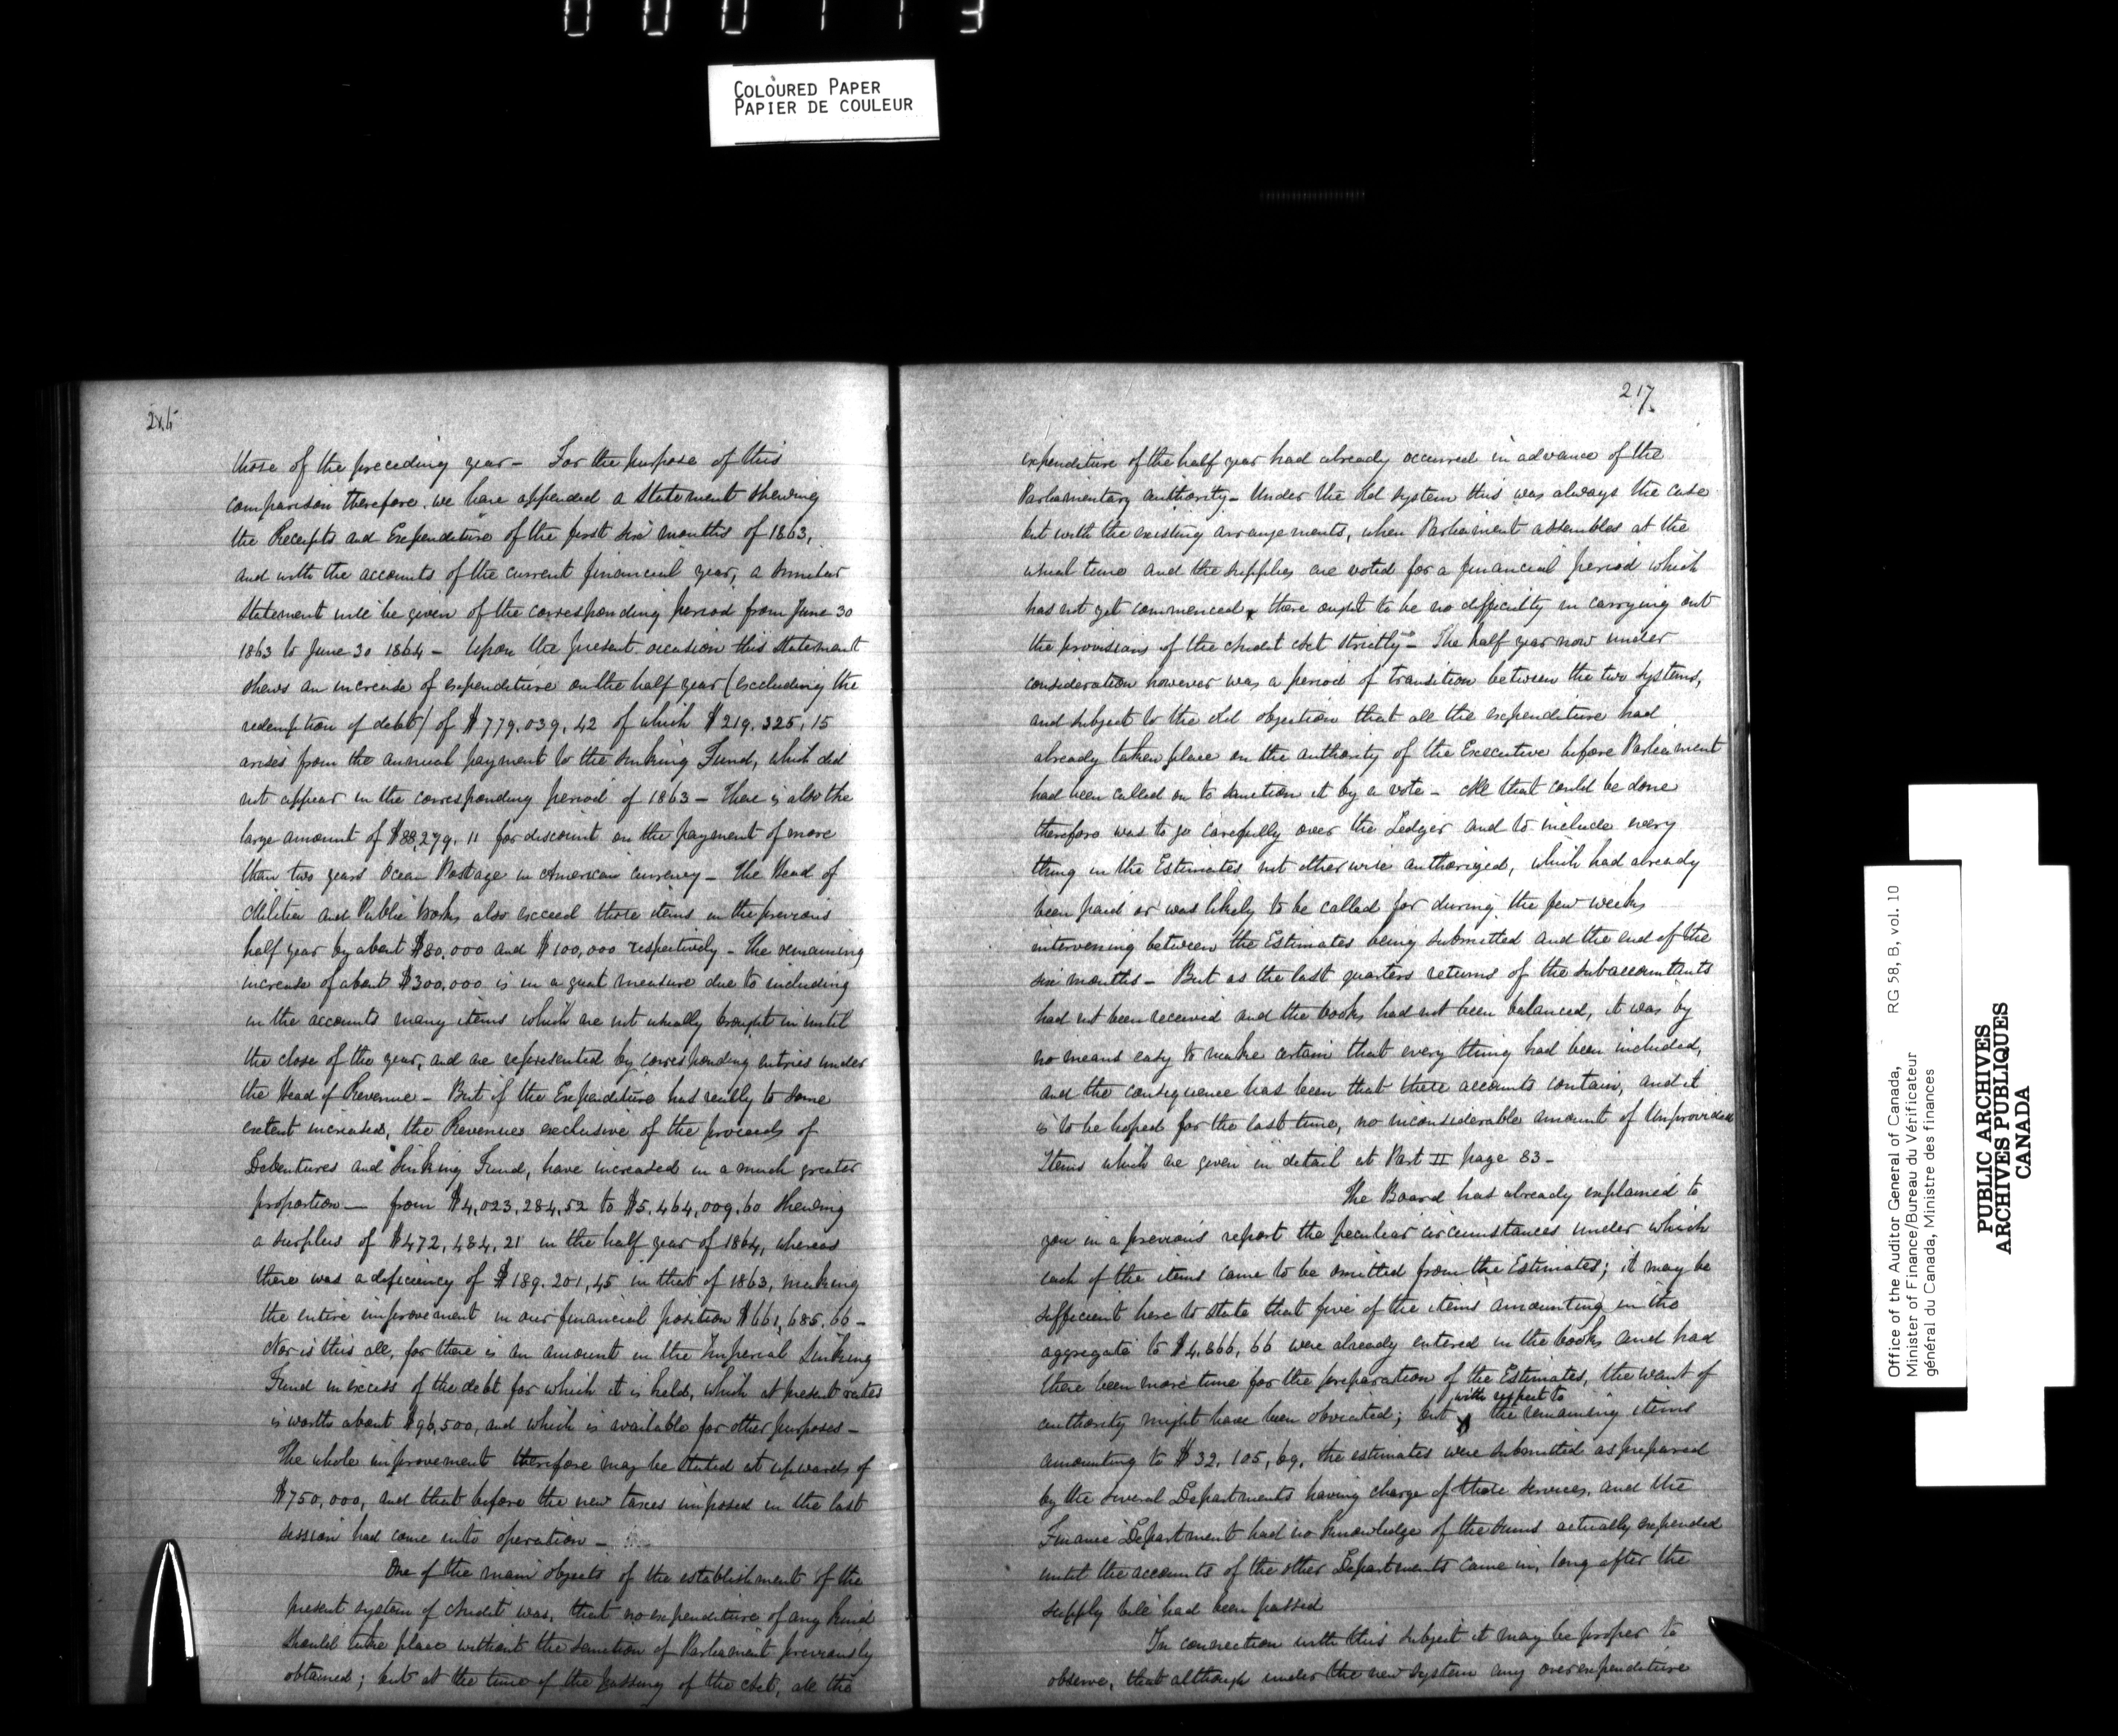 000113
COLOURED PAPER
PAPIER DE COULEUR
216
those of the preceding year – For the purpose of this
comparison therefore, we have appended a Statement shewing
the Receipts and Expenditure of the first six months of 1863,
and with the accounts of the current financial year, a similar
Statement will be given of the corresponding period from June 30
1863 to June 30 1864 – Upon the present occasion this Statement
shews an increase of expenditure on the half year (excluding the
redemption of debt) of $779,039,42 of which $219,325,15
arises from the annual payment to the Sinking Fund, which did
not appear in the corresponding period of 1863 – There is also the
large amount of $88,279.11 for discount on the payment of more
than two years Ocean Postage in American currency – The Head of
Militia and Public Works also exceed those items in the previous
half year by about $80,000 and $100,000 respectively – The remaining
increase of about $300,000 is in a great measure due to including
in the accounts many items which are not usually brought in until
the close of the year, and are represented by corresponding entries under
the Head of Revenue – But if the Expenditure has really to some
extent increased, the Revenues exclusive of the proceeds of
Debentures and Sinking Fund, have increased in a much greater
proportion – from $4,023,284,52 to $5,464,009.60 shewing
a surplus of $472,484,21 in the half year of 1864, whereas
there was a deficiency of $189.201,45 in that of 1863, making
the entire improvement in our financial position $661,685.66 –
Nor is this all, for there is an amount in the Imperial Sinking
Fund in excess of the debt for which it is held, which at present rates
is worth about $96,500, and which is available for other purposes –
The whole improvement therefore may be stated at upwards of
$750,000, and that before the new taxes imposed in the last
session had come into operation –
One of the main objects of the establishment of the
present system of Audit was, that no expenditure of any kind
should take place without the sanction of Parliament previously
obtained; but at the time of the passing of the Act, all the
217.
expenditure of the half year had already occurred in advance of the
Parliamentary authority – Under the old system this was always the case
but with the existing arrangements, when Parliament assembles at the
usual time and the supplies are voted for a financial period which
has not yet commenced, there ought to be no difficulty in carrying out
the provisions of the Audit Act strictly – The half year now under
consideration however was a period of transition between the two systems,
and subject to the old objection that all the expenditure had
already taken place on the authority of the Executive before Parliament
had been called on to sanction it by a vote – All that could be done
therefore was to go carefully over the Ledger and to include every
thing in the Estimates not otherwise authorized, which had already
been paid or was likely to be called for during the few weeks
intervening between the Estimates being submitted and the end of the
six months – But as the last quarters returns of the subaccountants
had not been received and the books had not been balanced, it was by
no means easy to make certain that every thing had been included,
and the consequence has been that these accounts contain, and it
is to be hoped for the last time, no inconsiderable amount of Unprovided
Items which are given in detail at Part II page 83 –
The Board has already explained to
you in a previous report the peculiar circumstances under which
each of the items came to be omitted from the Estimates; it may be
sufficient here to state that five of the items amounting in the
aggregate to $4,866,66 were already entered in the books and had
there been more time for the preparation of the Estimates, the want of
authority might have been obviated; but with respect to the remaining items
amounting to $32,105,69, the estimates were submitted as prepared
by the several Departments having charge of those services, and the
Finance Department had no knowledge of the sums actually expended
until the accounts of the other Departments came in, long after the
supply bill had been passed
In connection with this subject it may be proper to
observe, that although under the new system any overexpenditure
Office of the Auditor General of Canada, RG 58, B, vol. 10
Minister of Finance/Bureau du Vérificateur
général du Canada, Ministre des finances
PUBLIC ARCHIVES
ARCHIVES PUBLIQUES
CANADA